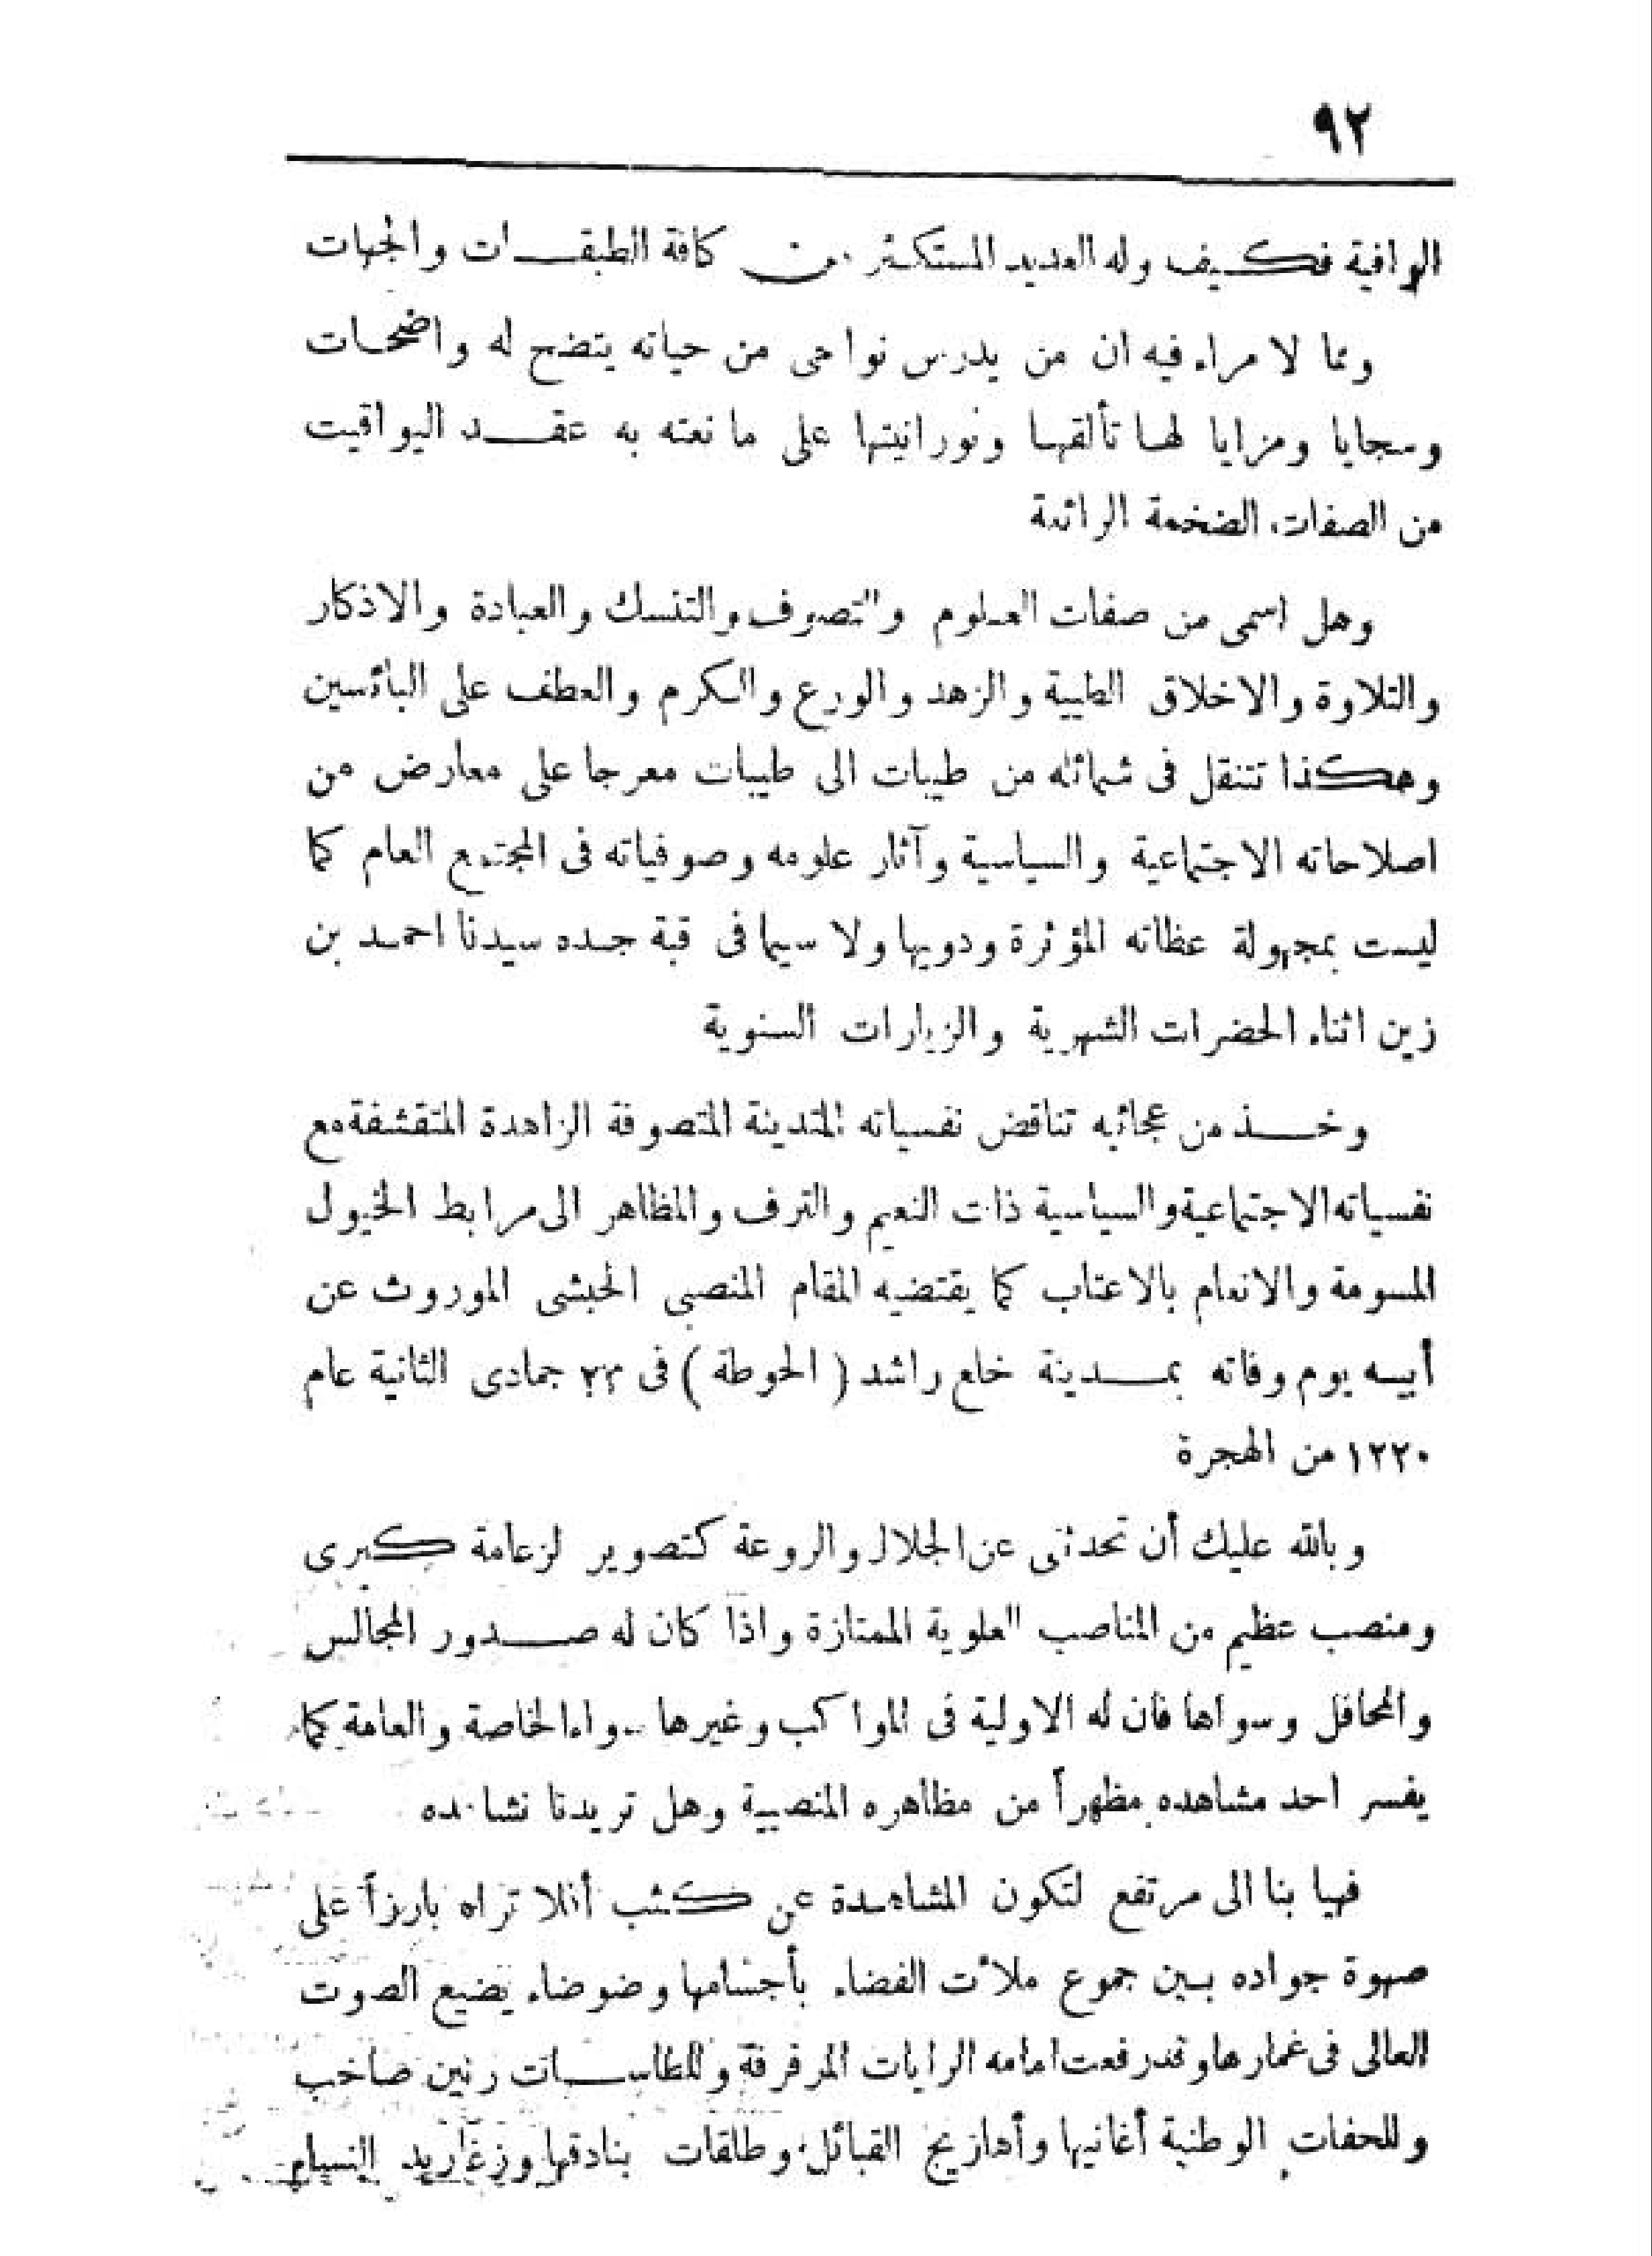 ٩٢
الوافية فكيف وله العديد المستكثر من كافة الطبقات والجهات
ومما لا مراء فيه ان من يدرس نواحى من حياته يتضح له واضحات
وسجايا ومزايا لها تألقها ونورانيتها على ما نعته به عقد اليواقيت
من الصفات الضخمة الرائعة
وهل اسمى من صفات العلوم والتصوف والتنسك والعبادة والاذكار
والتلاوة والاخلاق الطيبة والزهد والورع والكرم والعطف على البائسين
وهكذا تتنقل فى شمائله من طيبات الى طيبات معرجا على معارض من
اصلاحاته الاجتماعية والسياسية وآثار علومه وصوفياته فى المجتمع العام كما
ليست بمجهولة عظاته المؤثرة ودويها ولا سيما فى قبة جده سيدنا احمد بن
زين اثناء الحضرات الشهرية والزيارات السنوية
وخذ من عجائبه تناقض نفسياته المتدينة المتصوفة الزاهدة المتقشفة مع
نفسياته الاجتماعية والسياسية ذات النعيم والترف والمظاهر الى مرابط الخيول
المسومة والانعام بالاعتاب كما يقتضيه المقام المنصبى الحبشى الموروث عن
أبيه يوم وفاته بمدينة خلع راشد ( الحوطة ) فى ٢٣ جمادى الثانية عام
١٢٢٠ من الهجرة
وبالله عليك أن تحدثنى عن الجلال والروعة كتصوير لزعامة كبرى
ومنصب عظيم من المناصب العلوية الممتازة واذا كان له صدور المجالس
والمحافل وسواها فان له الاولية فى المواكب وغيرها سواء الخاصة والعامة كما
يفسر احد مشاهده مظهراً من مظاهره المنصبية وهل تريدنا نشاهده
فهيا بنا الى مرتفع لتكون المشاهدة عن كثب أفلا تراه بارزاً على
صهوة جواده بين جموع ملأت الفضاء بأجسامها وضوضاء يضيع الصوت
العالى فى غمارها وقد رفعت امامه الرايات المرفرفة وللطاسات رنين صاخب
وللحفات الوطنية أغانيها وأهازيج القبائل وطلقات بنادقها وزغاريد النساء